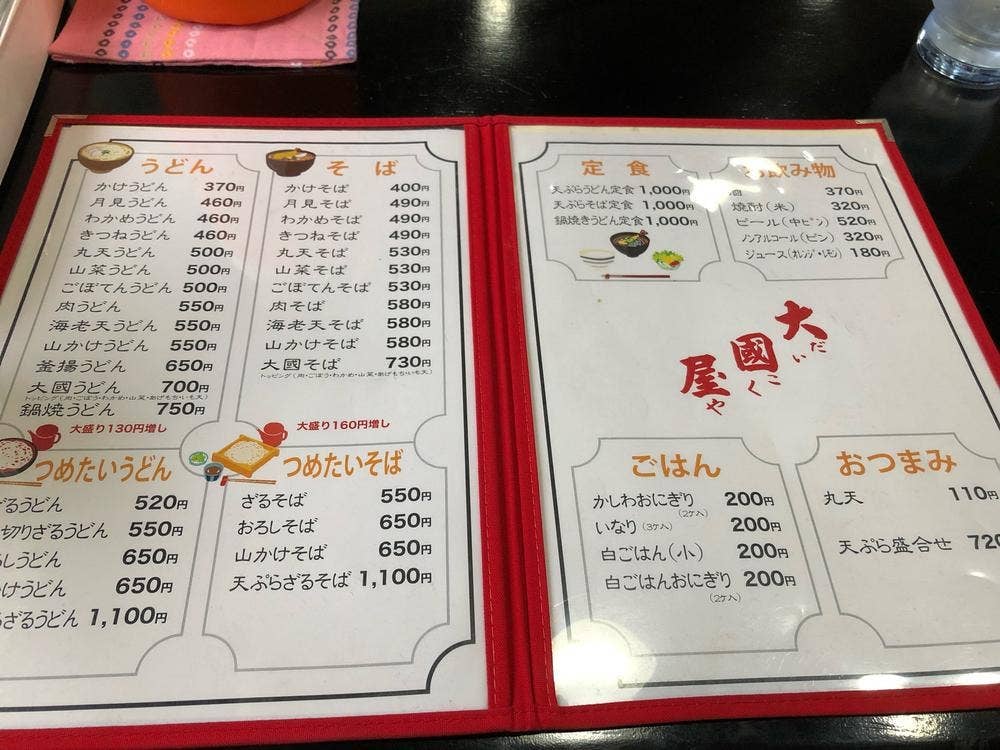 うどん
かけうどん 370円
月見うどん 460円
わかめうどん 460円
きつねうどん 460円
丸天うどん 500円
山菜うどん 500円
ごぼてんうどん 500円
肉うどん 550円
海老天うどん 550円
山かけうどん 550円
釜揚うどん 650円
大國うどん 700円
トッピング(肉・ごぼう・わかめ・山菜・あげもち・いも天)
鍋焼うどん 750円
大盛り130円増し
そば
かけそば 400円
月見そば 490円
わかめそば 490円
きつねそば 490円
丸天そば 530円
山菜そば 530円
ごぼてんそば 530円
肉そば 580円
海老天そば 580円
山かけそば 580円
大國そば 730円
トッピング(肉・ごぼう・わかめ・山菜・あげもち・いも天)
大盛り160円増し
つめたいうどん
ざるうどん 520円
切りざるうどん 550円
しうどん 650円
けうどん 650円
ざるうどん 1,100円
つめたいそば
ざるそば 550円
おろしそば 650円
山かけそば 650円
天ぷらざるそば 1,100円
定食
天ぷらうどん定食 1,000円
天ぷらそば定食 1,000円
鍋焼きうどん定食 1,000円
飲み物
酒 370円
焼酎(米) 320円
ビール(中ビン) 520円
ノンアルコール(ビン) 320円
ジュース(オレンジ・リモン) 180円
大國屋
だいこくや
ごはん
かしわおにぎり 200円
(2ケ入)
いなり(3ケ入) 200円
白ごはん(小) 200円
白ごはんおにぎり 200円
(2ケ入)
おつまみ
丸天 110円
天ぷら盛合せ 720